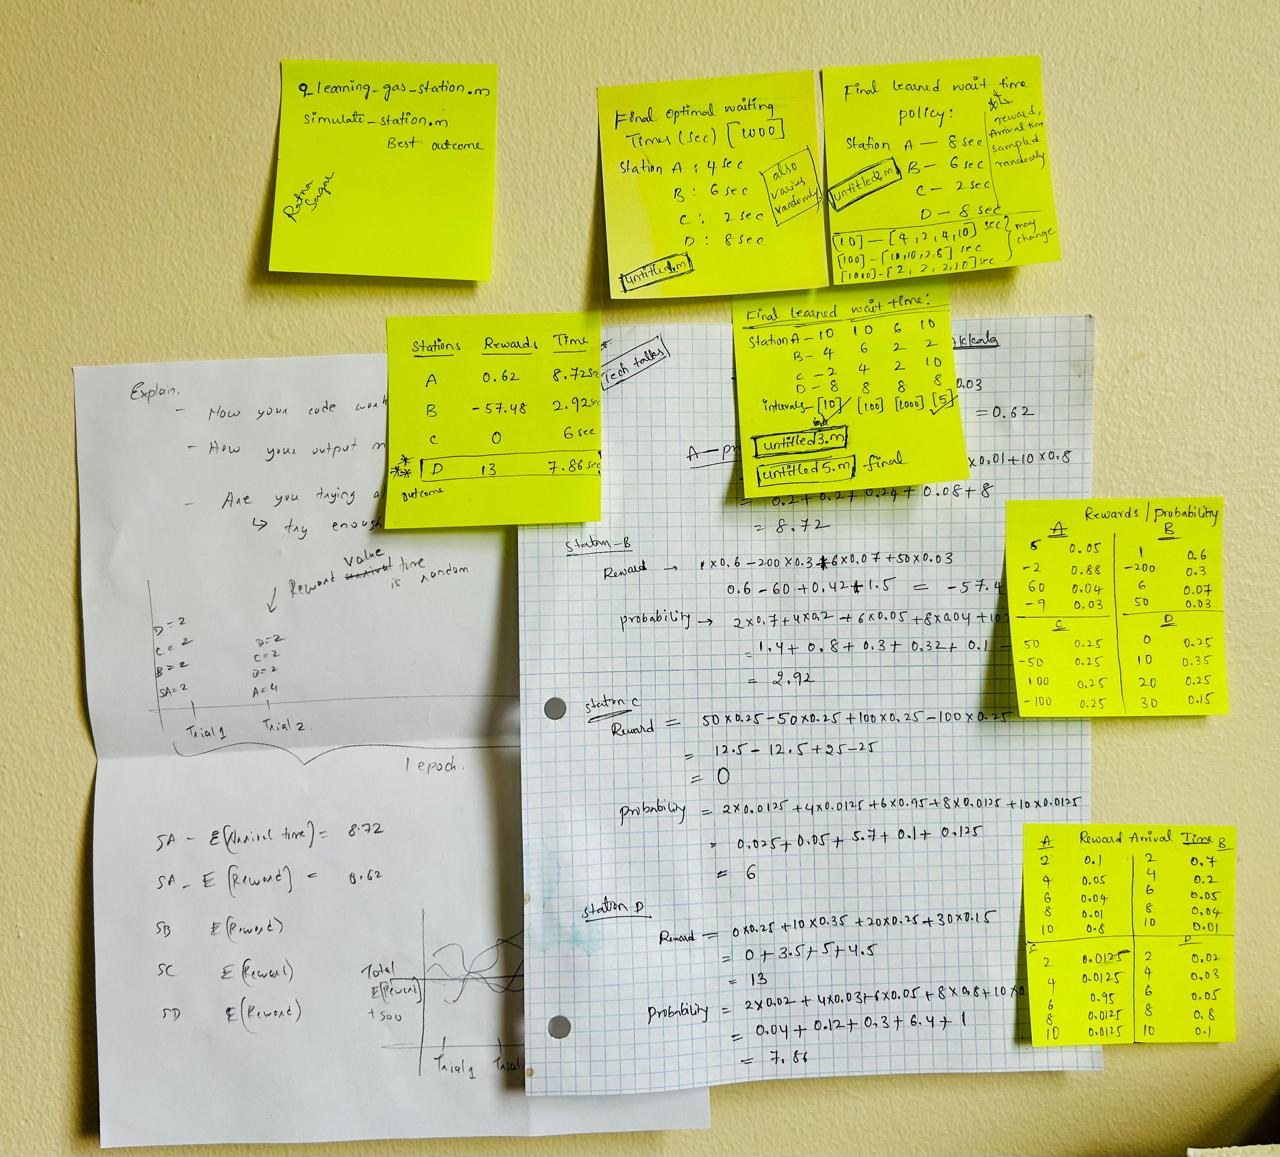 q learning_gas_station.m
simulate_station.m
Best outcome
Ratna
Sagar
Final optimal waiting
Times (sec) [1000]
Station A : 4 sec
B : 6 sec
C : 2 sec
D : 8 sec
also
varies
randomly
untitled.m
Final learned wait time
policy:
reward,
Arrival time
sampled
randomly
Station A – 8 sec
B – 6 sec
C – 2 sec
D – 8 sec
untitled2.m
[10] – [4, 2, 4, 10] sec
[100] – [10, 10, 2, 8] sec
[1000] – [2, 2, 2, 10] sec
may
change
Final learned wait time:
Station A – 10 10 6 10
B – 4 6 2 2
C – 2 4 2 10
D – 8 8 8 8
intervals – [10] [100] [1000] [5]
untitled3.m
untitled5.m – final
Stations Rewards Time
A 0.62 8.72sec
B -57.48 2.92sec
C 0 6 sec
D 13 7.86 sec
outcome
Explain.
- How your code
- How your output
- Are you trying
↳ try enough
Reward value time
is random
D=2
C=2
B=2
SA=2
D=2
C=2
B=2
A=4
Trial 1 Trial 2
1 epoch.
SA – E[Arrival time] = 8.72
SA – E[Reward] = 0.62
SB E[Reward]
SC E[Reward]
SD E[Reward]
Total
E[Reward]
+500
Trial 1
Tech talks
0.03
= 0.62
x 0.01 + 10 x 0.8
= 0.2 + 0.2 + 0.24 + 0.08 + 8
= 8.72
Station-B
Reward → 1 x 0.6 - 200 x 0.3 + 6 x 0.07 + 50 x 0.03
0.6 - 60 + 0.42 + 1.5 = -57.4
probability → 2 x 0.7 + 4 x 0.2 + 6 x 0.05 + 8 x 0.04 + 10
= 1.4 + 0.8 + 0.3 + 0.32 + 0.1
= 2.92
station C
Reward = 50 x 0.25 - 50 x 0.25 + 100 x 0.25 - 100 x 0.25
= 12.5 - 12.5 + 25 - 25
= 0
probability = 2 x 0.0125 + 4 x 0.0125 + 6 x 0.95 + 8 x 0.0125 + 10 x 0.0125
= 0.025 + 0.05 + 5.7 + 0.1 + 0.125
= 6
Station D
Reward = 0 x 0.25 + 10 x 0.35 + 20 x 0.25 + 30 x 0.15
= 0 + 3.5 + 5 + 4.5
= 13
Probability = 2 x 0.02 + 4 x 0.03 + 6 x 0.05 + 8 x 0.8 + 10 x 0
= 0.04 + 0.12 + 0.3 + 6.4 + 1
= 7.86
Rewards / probability
A B
5 0.05 1 0.6
-2 0.88 -200 0.3
60 0.04 6 0.07
-9 0.03 50 0.03
C D
50 0.25 0 0.25
-50 0.25 10 0.35
100 0.25 20 0.25
-100 0.25 30 0.15
A Reward Arrival Time B
2 0.1 2 0.7
4 0.05 4 0.2
6 0.04 6 0.05
8 0.01 8 0.04
10 0.8 10 0.01
C D
2 0.0125 2 0.02
4 0.0125 4 0.03
6 0.95 6 0.05
8 0.0125 8 0.8
10 0.0125 10 0.1